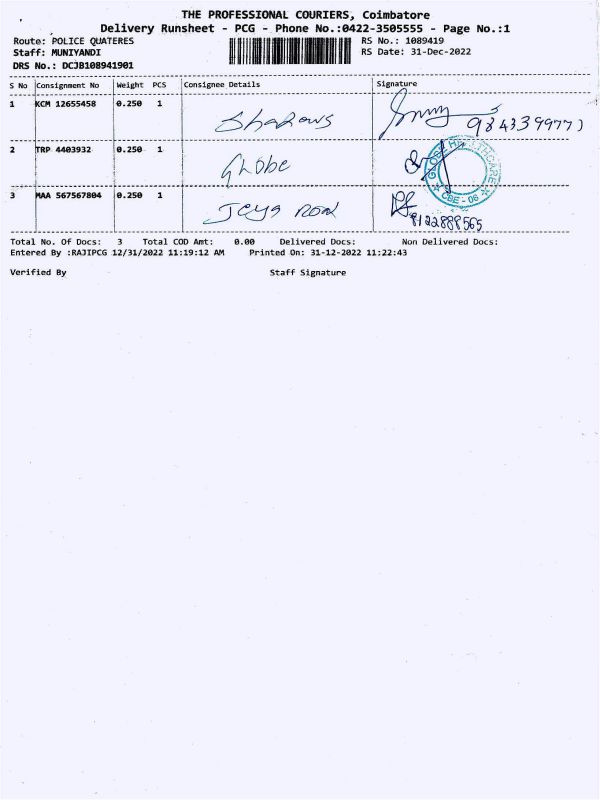 THE PROFESSIONAL COURIERS, Coimbatore
Delivery Runsheet - PCG - Phone No.:0422-3505555 - Page No.:1
Route: POLICE QUATERES RS No.: 1089419
Staff: MUNIYANDI RS Date: 31-Dec-2022
DRS No.: DCJB108941901
S No Consignment No Weight PCS Consignee Details Signature
1 KCM 12655458 0.250 1 9843399773
2 TRP 4403932 0.250 1 Globe GLOBE HEALTHCARE CBE - 06
3 MAA 567567804 0.250 1 Jeya 9122888565
Total No. Of Docs: 3 Total COD Amt: 0.00 Delivered Docs: Non Delivered Docs:
Entered By :RAJIPCG 12/31/2022 11:19:12 AM Printed On: 31-12-2022 11:22:43
Verified By Staff Signature